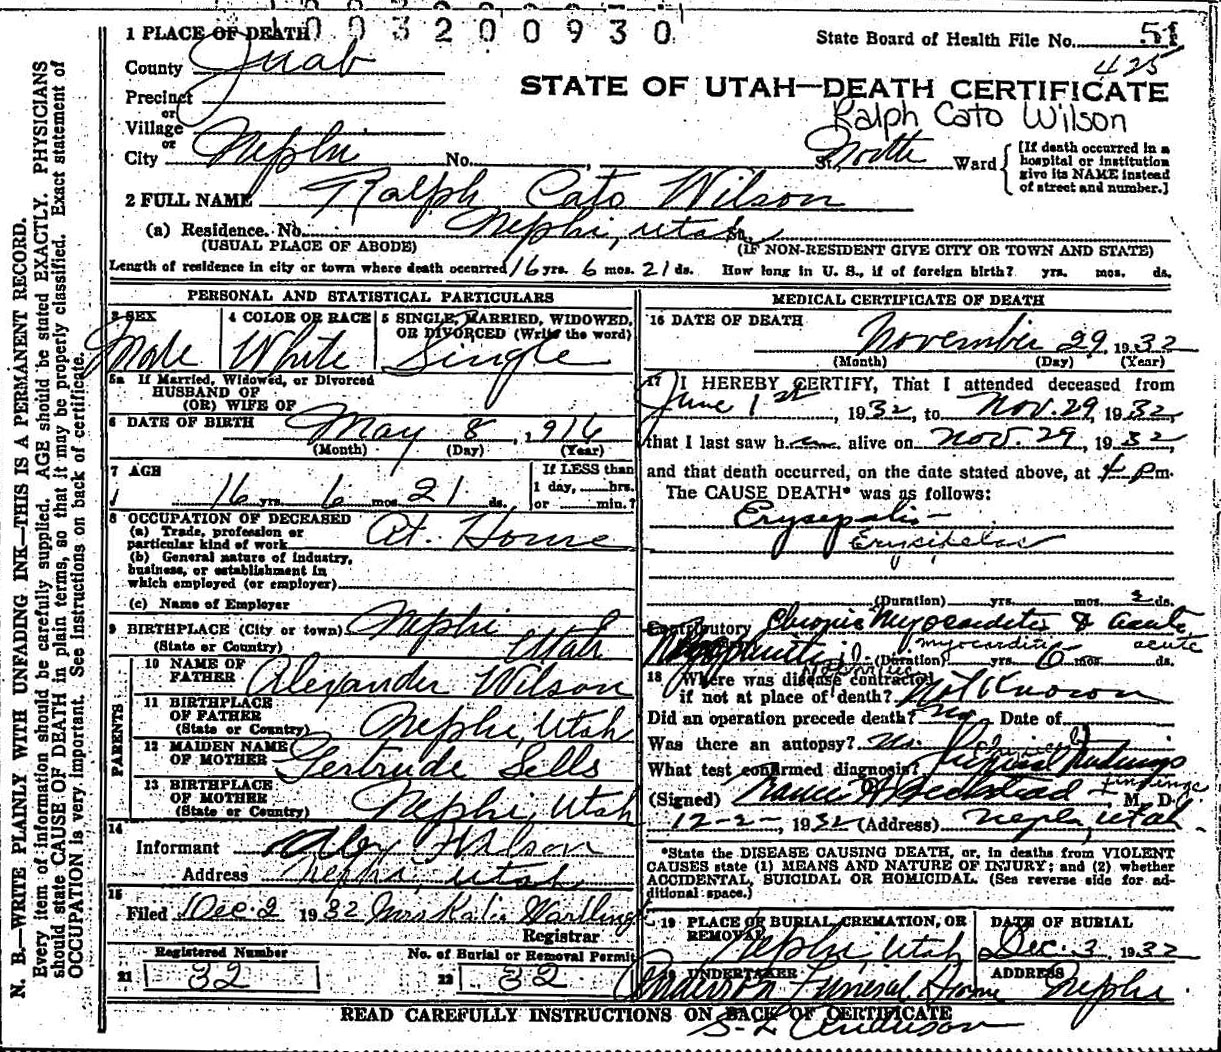 1003200930
1 PLACE OF DEATH
State Board of Health File No.
425
County Juab
STATE OF UTAH—DEATH CERTIFICATE
Precinct
or
Ralph Cato Wilson
Village
or
City Nephi No. , St., North Ward
[If death occurred in a hospital or institution give its NAME instead of street and number.]
2 FULL NAME Ralph Cato Wilson
(a) Residence. No. Nephi, Utah St.
(USUAL PLACE OF ABODE) (IF NON-RESIDENT GIVE CITY OR TOWN AND STATE)
Length of residence in city or town where death occurred 16 yrs. 6 mos. 21 ds. How long in U. S., if of foreign birth? yrs. mos. ds.
PERSONAL AND STATISTICAL PARTICULARS
3 SEX 4 COLOR OR RACE 5 SINGLE, MARRIED, WIDOWED, OR DIVORCED (Write the word)
Male White Single
5a If Married, Widowed, or Divorced
HUSBAND OF
(OR) WIFE OF
6 DATE OF BIRTH May 8, 1916
(Month) (Day) (Year)
7 AGE If LESS than
16 yrs. 6 mos. 21 ds. 1 day, hrs.
or min.?
8 OCCUPATION OF DECEASED
(a) Trade, profession or
particular kind of work At Home
(b) General nature of industry,
business, or establishment in
which employed (or employer)
(c) Name of Employer
9 BIRTHPLACE (City or town) Nephi
(State or Country) Utah
PARENTS
10 NAME OF
FATHER Alexander Wilson
11 BIRTHPLACE
OF FATHER
(State or Country) Nephi, Utah
12 MAIDEN NAME
OF MOTHER Gertrude Sells
13 BIRTHPLACE
OF MOTHER
(State or Country) Nephi, Utah
14
Informant Alex Wilson
Address Nephi, Utah
15
Filed Dec. 2 1932 Mrs
Registrar
Registered Number No. of Burial or Removal Permit
21 32 22 32
MEDICAL CERTIFICATE OF DEATH
16 DATE OF DEATH
November 29, 1932
(Month) (Day) (Year)
17 I HEREBY CERTIFY, That I attended deceased from
June 1st, 1932, to Nov. 29, 1932,
that I last saw h alive on Nov. 29, 1932,
and that death occurred, on the date stated above, at 4 pm.
The CAUSE DEATH* was as follows:
Erysepalis
Erysipelas
(Duration) yrs. mos. ds.
Contributory Chronic Myocardites & acute
myocarditis acute
(Duration) yrs. 6 mos. ds.
18 Where was disease contracted
if not at place of death? Not Known
Did an operation precede death? No Date of
Was there an autopsy? No
What test confirmed diagnosis? findings
(Signed) , M. D.
12-2-, 1932 (Address) Nephi, Utah.
*State the DISEASE CAUSING DEATH, or, in deaths from VIOLENT
CAUSES state (1) MEANS AND NATURE OF INJURY; and (2) whether
ACCIDENTAL, SUICIDAL OR HOMICIDAL. (See reverse side for ad-
ditional space.)
19 PLACE OF BURIAL, CREMATION, OR DATE OF BURIAL
REMOVAL Nephi, Utah Dec. 3, 1932
20 UNDERTAKER ADDRESS
Anderson Funeral Home Nephi
READ CAREFULLY INSTRUCTIONS ON BACK OF CERTIFICATE
S. L. Anderson
N. B.—WRITE PLAINLY WITH UNFADING INK—THIS IS A PERMANENT RECORD.
Every item of information should be carefully supplied. AGE should be stated EXACTLY. PHYSICIANS
should state CAUSE OF DEATH in plain terms, so that it may be properly classified. Exact statement of
OCCUPATION is very important. See instructions on back of certificate.